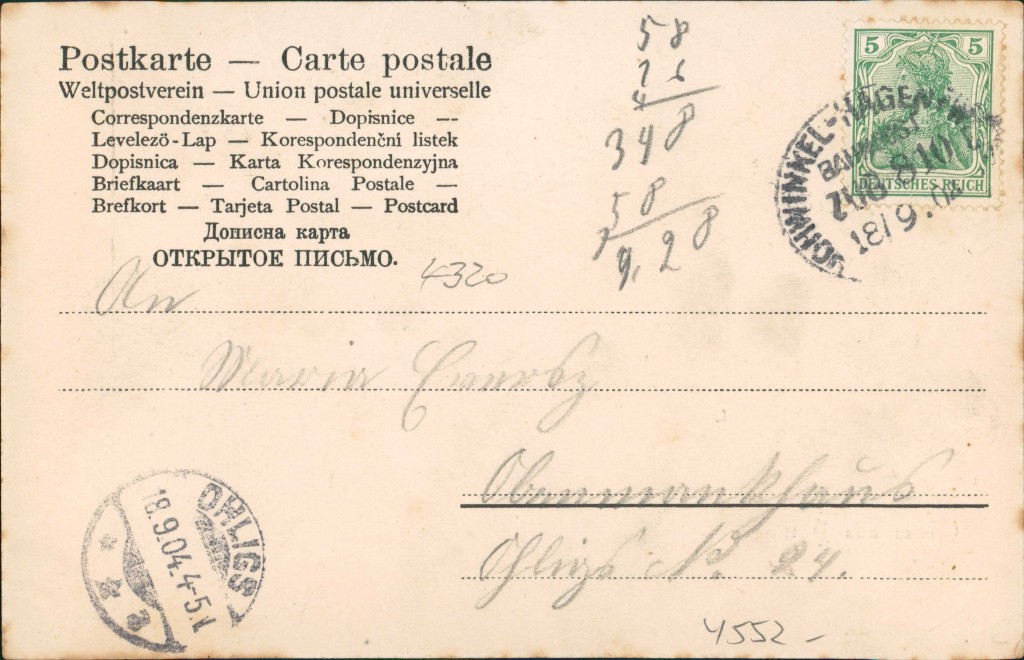 Postkarte — Carte postale
Weltpostverein — Union postale universelle
Correspondenzkarte — Dopisnice --
Levelezö-Lap — Korespondenční listek
Dopisnica — Karta Korespondenzyjna
Briefkaart — Cartolina Postale —
Brefkort — Tarjeta Postal — Postcard
Дописна карта
ОТКРЫТОЕ ПИСЬМО.
58
348
58
9,28
4320
5 5
DEUTSCHES REICH
BAHNPOST
ZUG 810
18/9.04
An
Maria
Ohligs No. 24.
OHLIGS
18.9.04.4-5N.
* * a
4552 -